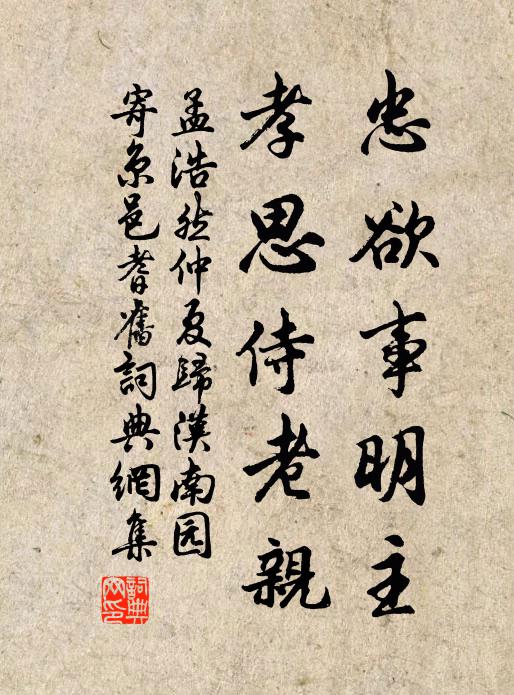 忠欲事明主
孝思侍老親
孟浩然仲夏歸漢南园
寄京邑耆舊詞典網集
詞典網印